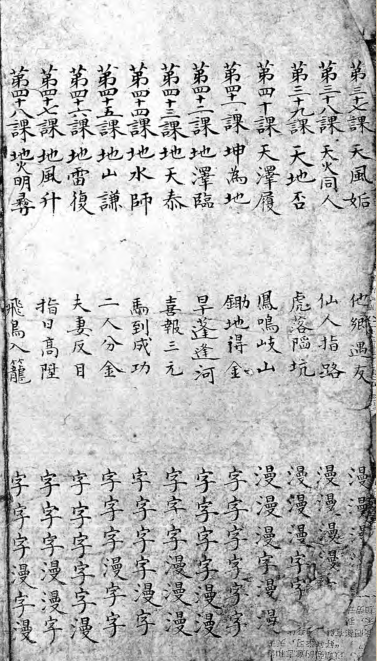 第三十七課 天風姤 他鄉遇友 漫漫漫
第三十八課 天火同人 仙人指路 漫漫漫漫
第三十九課 天地否 虎落陷坑 漫漫漫字字
第四十課 天澤履 鳳鳴岐山 漫漫漫字漫漫
第四十一課 坤為地 鋤地得金 字字字字字字
第四十二課 地澤臨 旱蓬逢河 字字字字漫漫
第四十三課 地天泰 喜報三元 字字字漫漫漫
第四十四課 地水師 馬到成功 字字字字漫字
第四十五課 地山謙 二人分金 字字字漫字字
第四十六課 地雷復 夫妻反目 字字字字字漫
第四十七課 地風升 指日高陞 字字字漫漫字
第四十八課 地火明尋 飛鳥入籠 字字字漫字漫